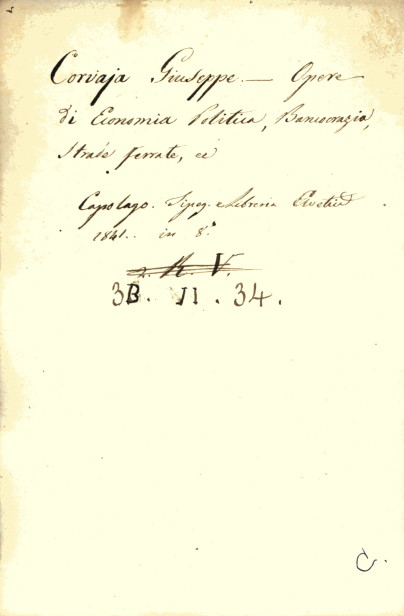 Corvaja Giuseppe. — Opere
di Economia Politica, Bancocrazia,
Strade ferrate, ec
Capolago. Tipog. e Libreria Elvetica
1841. in 8.°
2. R. V.
3B. II. 34.
C.